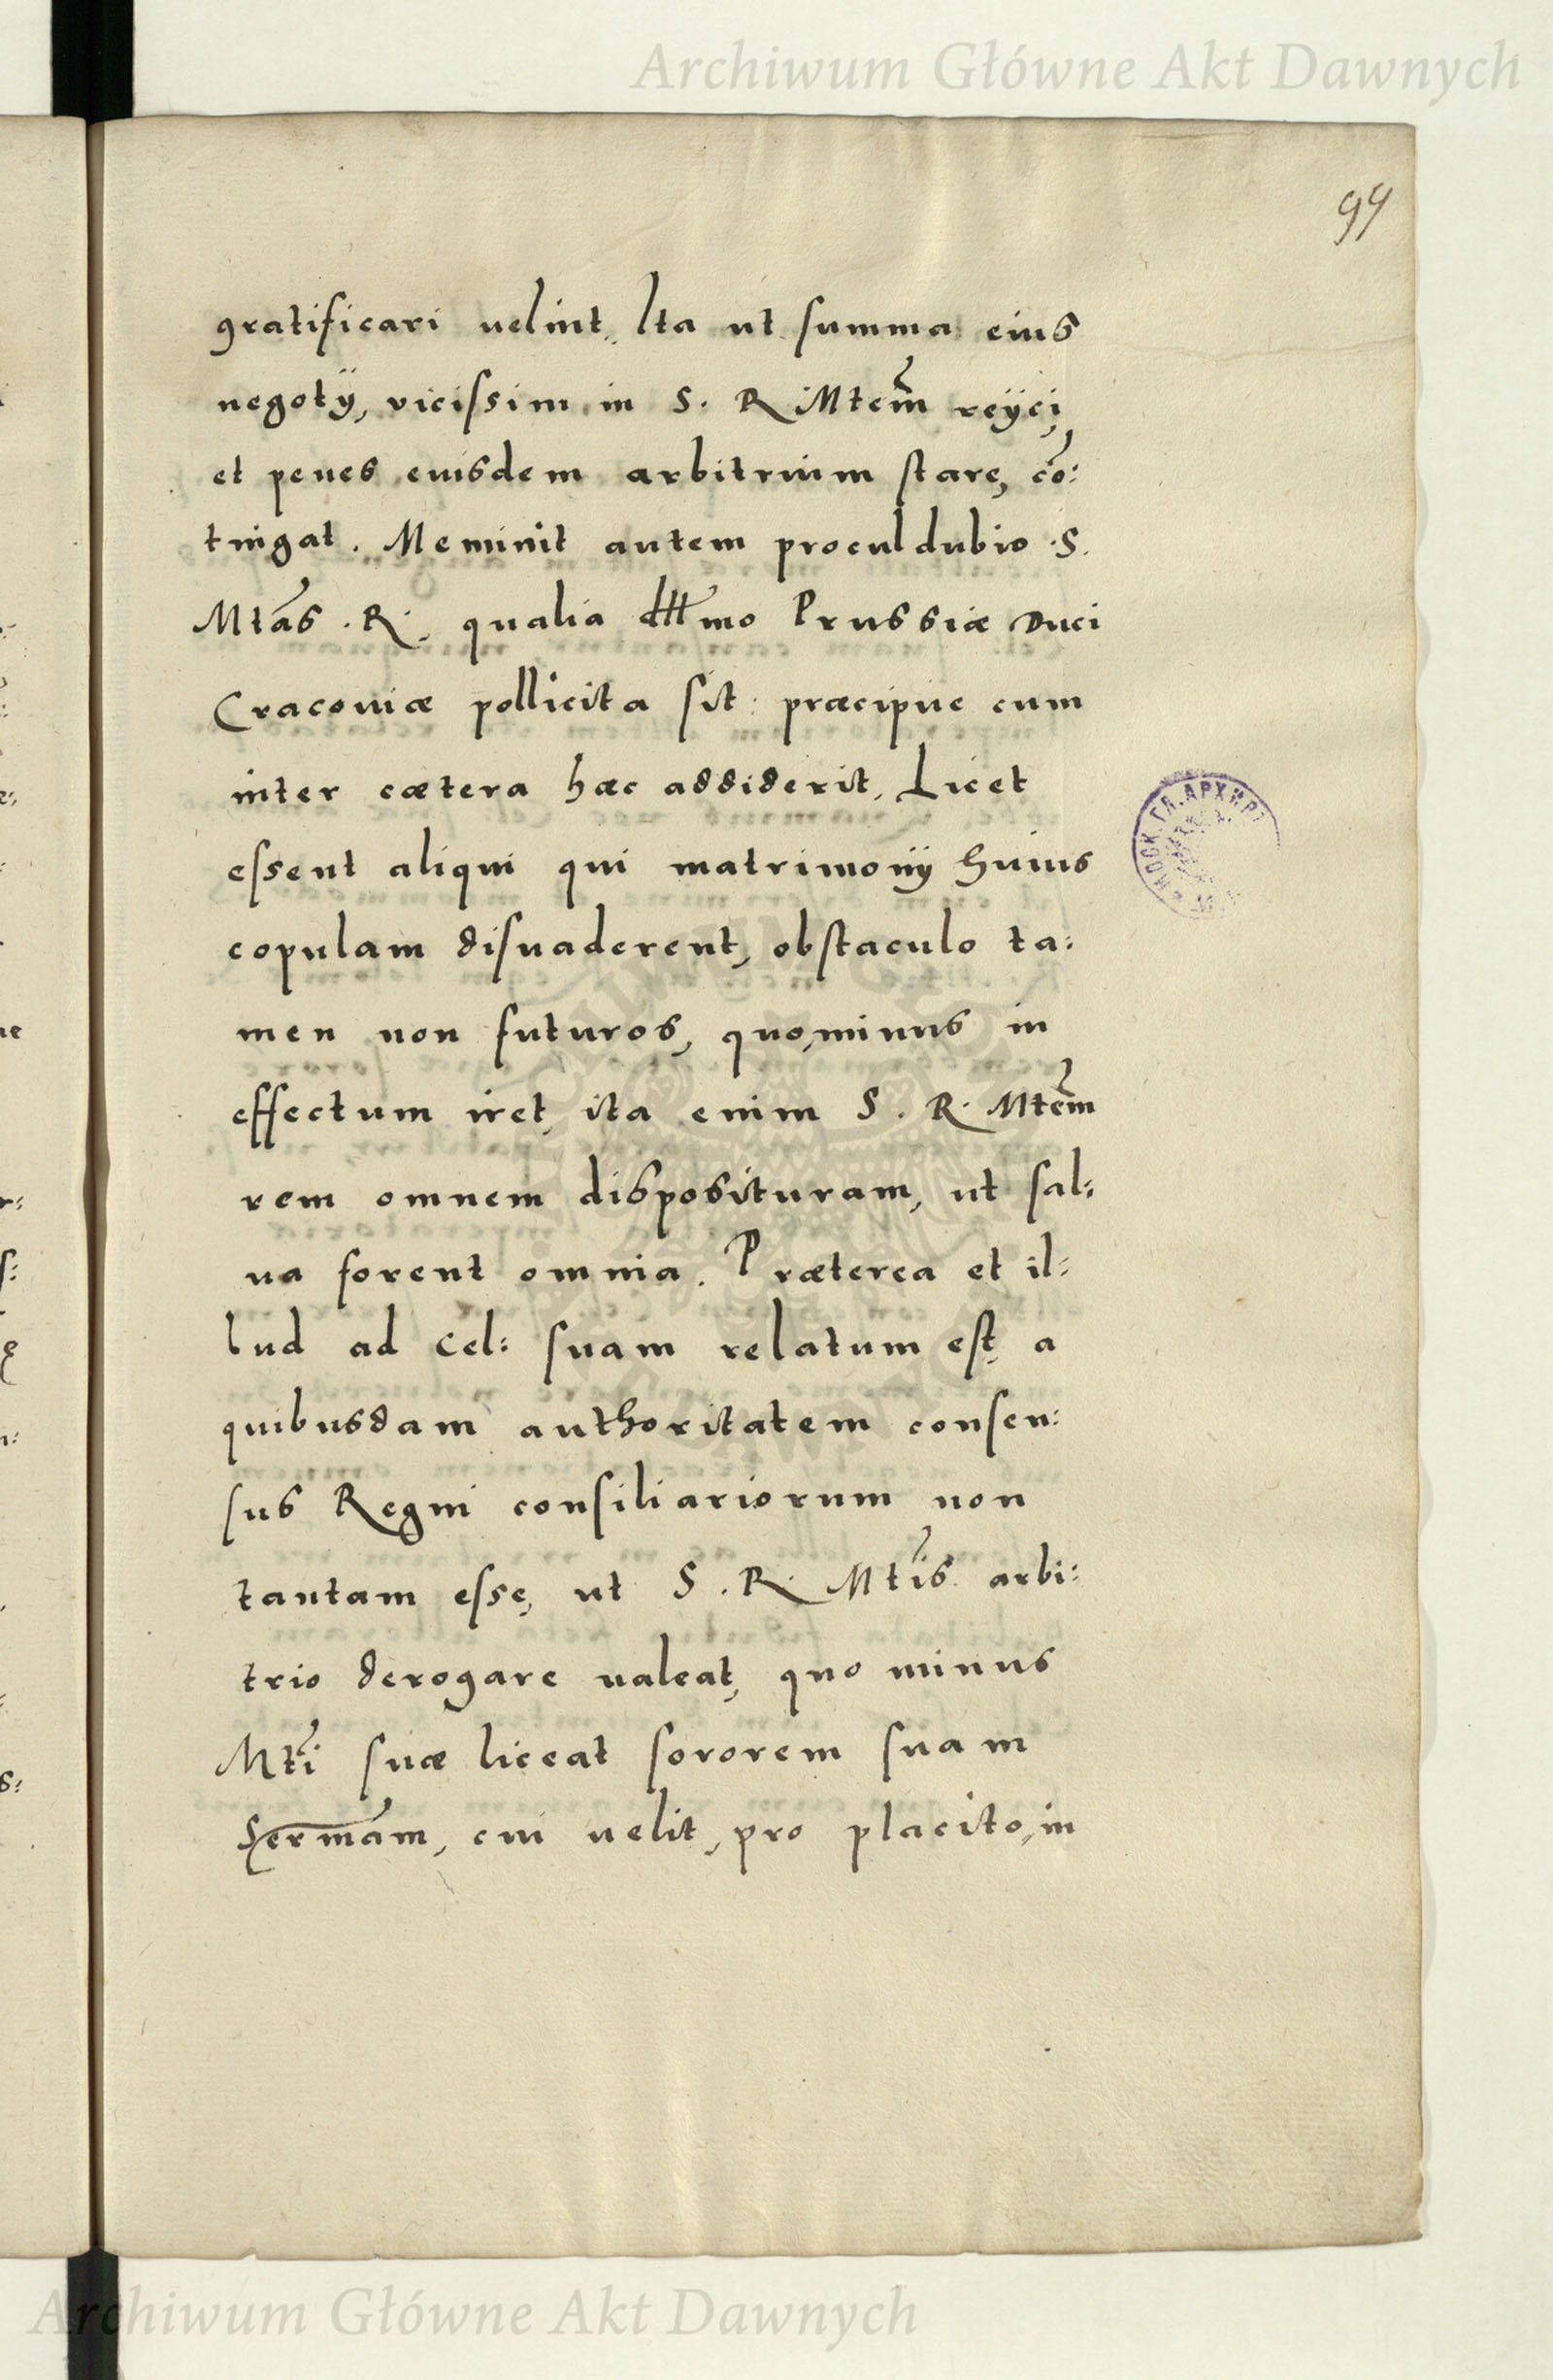 Archiwum Główne Akt Dawnych
99
gratificari uelint, Ita ut summa eius
negotÿ, vicissim in S. R Mtem̃ reÿci,
et penes eiusdem arbitrium stare, cõ:
tingat. Meminit autem proculdubio .S.
Mtãs .R. qualia Illmo Prussiæ Duci
Cracouiæ pollicita sit: præcipue cum
inter cætera hæc addiderit, Licet
essent aliqui qui matrimonÿ huius
copulam disuaderent, obstaculo ta:
men non futuros, quo,minus in
effectum iret, ita enim S. R. Mtem̃
rem omnem disposituram, ut sal:
ua forent omnia. Præterea et il:
lud ad Cel: suam relatum est, a
quibusdam authoritatem consen:
sus Regni consiliariorum non
tantam esse, ut S. R. Mtis̃ arbi:
trio derogare ualeat, quo minus
Mtĩ suæ liceat sororem suam
Sermãm, cui uelit, pro placito, in
МОСК. ГЛ. АРХИВ
Archiwum Główne Akt Dawnych